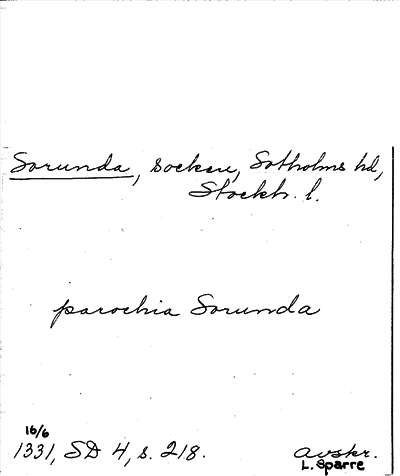 Sorunda, socken, Sotholms hd,
Stockh. l.
parochia Sorunda
16/6
1331, SD 4, s. 218.
avskr.
L. Sparre